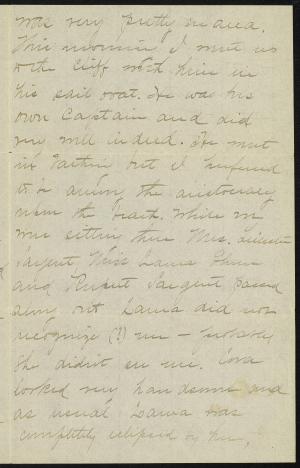 was very pretty indeed.
This morning I went up
to the Cliff with him in
his sail boat. He was his
own Captain and did
very well indeed. He went
in bathing but I preferred
to be among the aristocracy
upon the beach. While we
were sitting there Mrs.
Sargent Miss Laura
and Rupert Sargent passed
along but Laura did not
recognize (?) me - probably
she didn't see me. Cora
looked very handsome and
as usual Laura was
completely eclipsed by her.